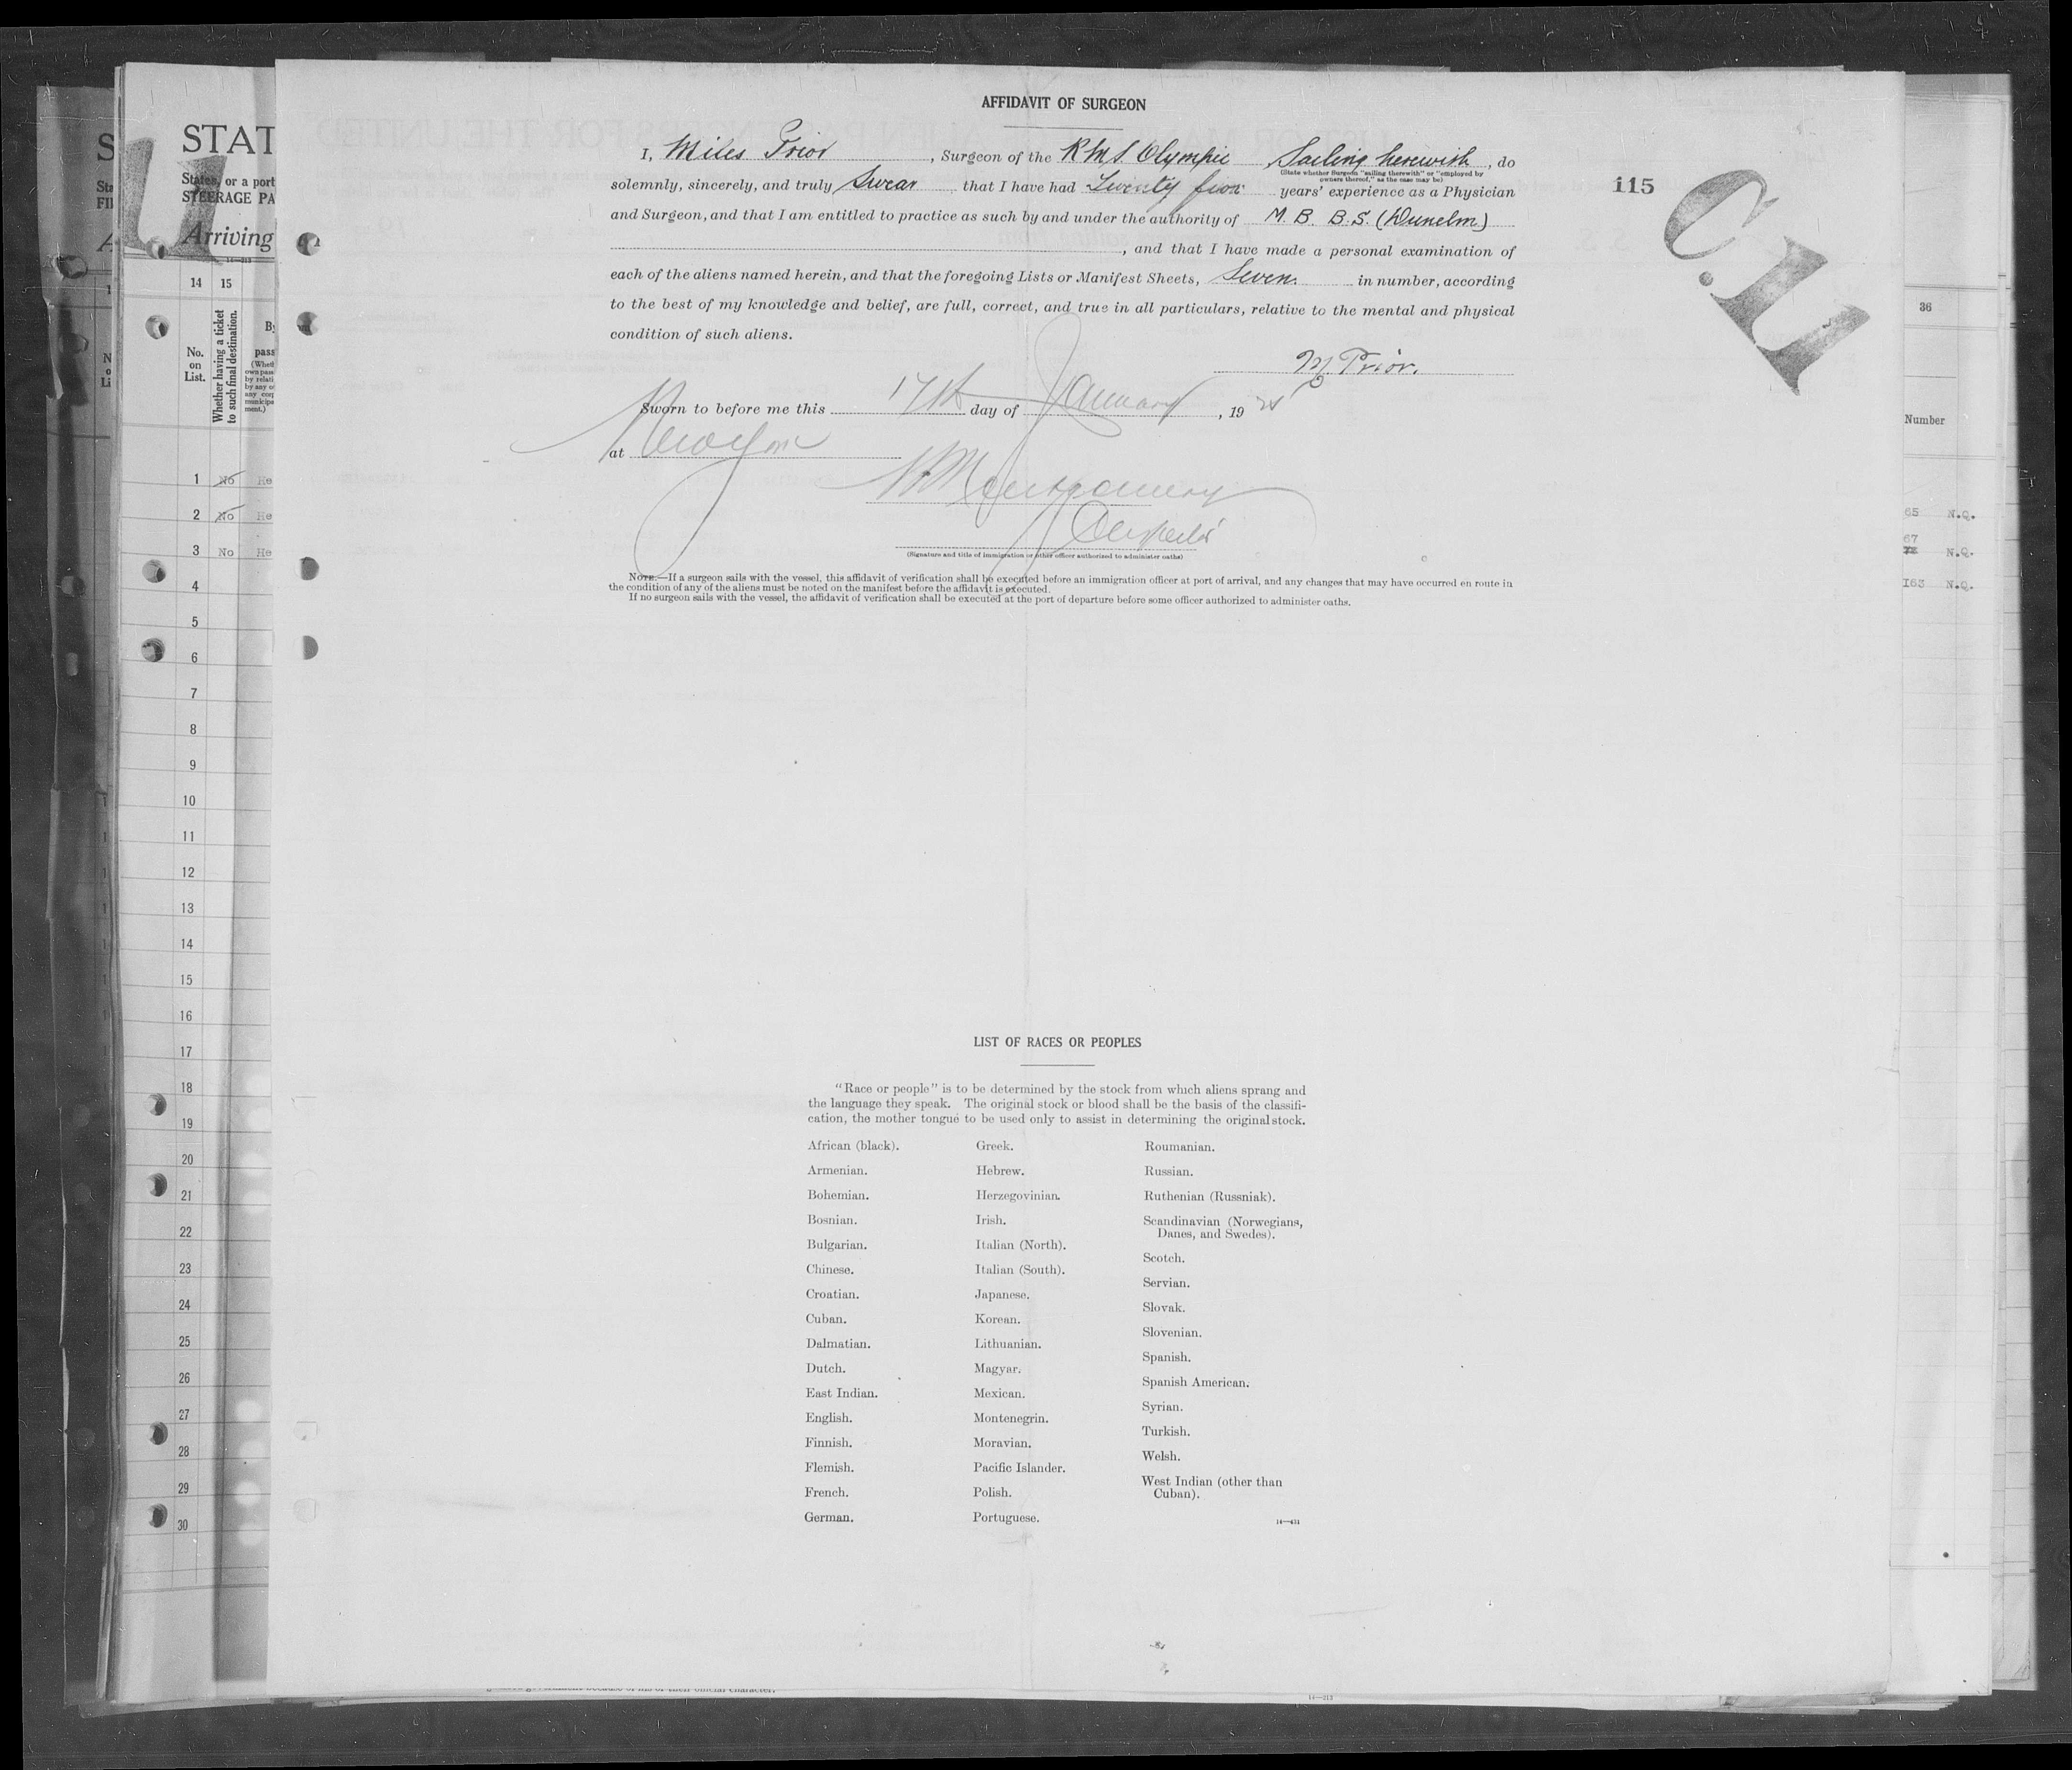 AFFIDAVIT OF SURGEON
I, Miles Prior, Surgeon of the R.M.S. Olympic Sailing herewith, do
(State whether Surgeon "sailing therewith" or "employed by
owners thereof," as the case may be)
solemnly, sincerely, and truly Swear that I have had Twenty five years' experience as a Physician
115
and Surgeon, and that I am entitled to practice as such by and under the authority of M.B. B.S. (Dunelm)
, and that I have made a personal examination of
each of the aliens named herein, and that the foregoing Lists or Manifest Sheets, Seven in number, according
to the best of my knowledge and belief, are full, correct, and true in all particulars, relative to the mental and physical
condition of such aliens.
M. Prior.
Sworn to before me this 17th day of January, 19
at New York
Montgomery
Inspector
(Signature and title of immigration or other officer authorized to administer oaths)
NOTE.—If a surgeon sails with the vessel, this affidavit of verification shall be executed before an immigration officer at port of arrival, and any changes that may have occurred en route in
the condition of any of the aliens must be noted on the manifest before the affidavit is executed.
If no surgeon sails with the vessel, the affidavit of verification shall be executed at the port of departure before some officer authorized to administer oaths.
LIST OF RACES OR PEOPLES
"Race or people" is to be determined by the stock from which aliens sprang and
the language they speak. The original stock or blood shall be the basis of the classifi-
cation, the mother tongue to be used only to assist in determining the original stock.
African (black).
Armenian.
Bohemian.
Bosnian.
Bulgarian.
Chinese.
Croatian.
Cuban.
Dalmatian.
Dutch.
East Indian.
English.
Finnish.
Flemish.
French.
German.
Greek.
Hebrew.
Herzegovinian.
Irish.
Italian (North).
Italian (South).
Japanese.
Korean.
Lithuanian.
Magyar.
Mexican.
Montenegrin.
Moravian.
Pacific Islander.
Polish.
Portuguese.
Roumanian.
Russian.
Ruthenian (Russniak).
Scandinavian (Norwegians,
Danes, and Swedes).
Scotch.
Servian.
Slovak.
Slovenian.
Spanish.
Spanish American.
Syrian.
Turkish.
Welsh.
West Indian (other than
Cuban).
STAT
States, or a port
STEERAGE PA
Arriving
14 15
No.
on
List.
Whether having a ticket
to such final destination.
1 No He
2 No He
3 No He
4
5
6
7
8
9
10
11
12
13
14
15
16
17
18
19
20
21
22
23
24
25
26
27
28
29
30
36
Number
65 N.Q.
67
N.Q.
163 N.Q.
14—213